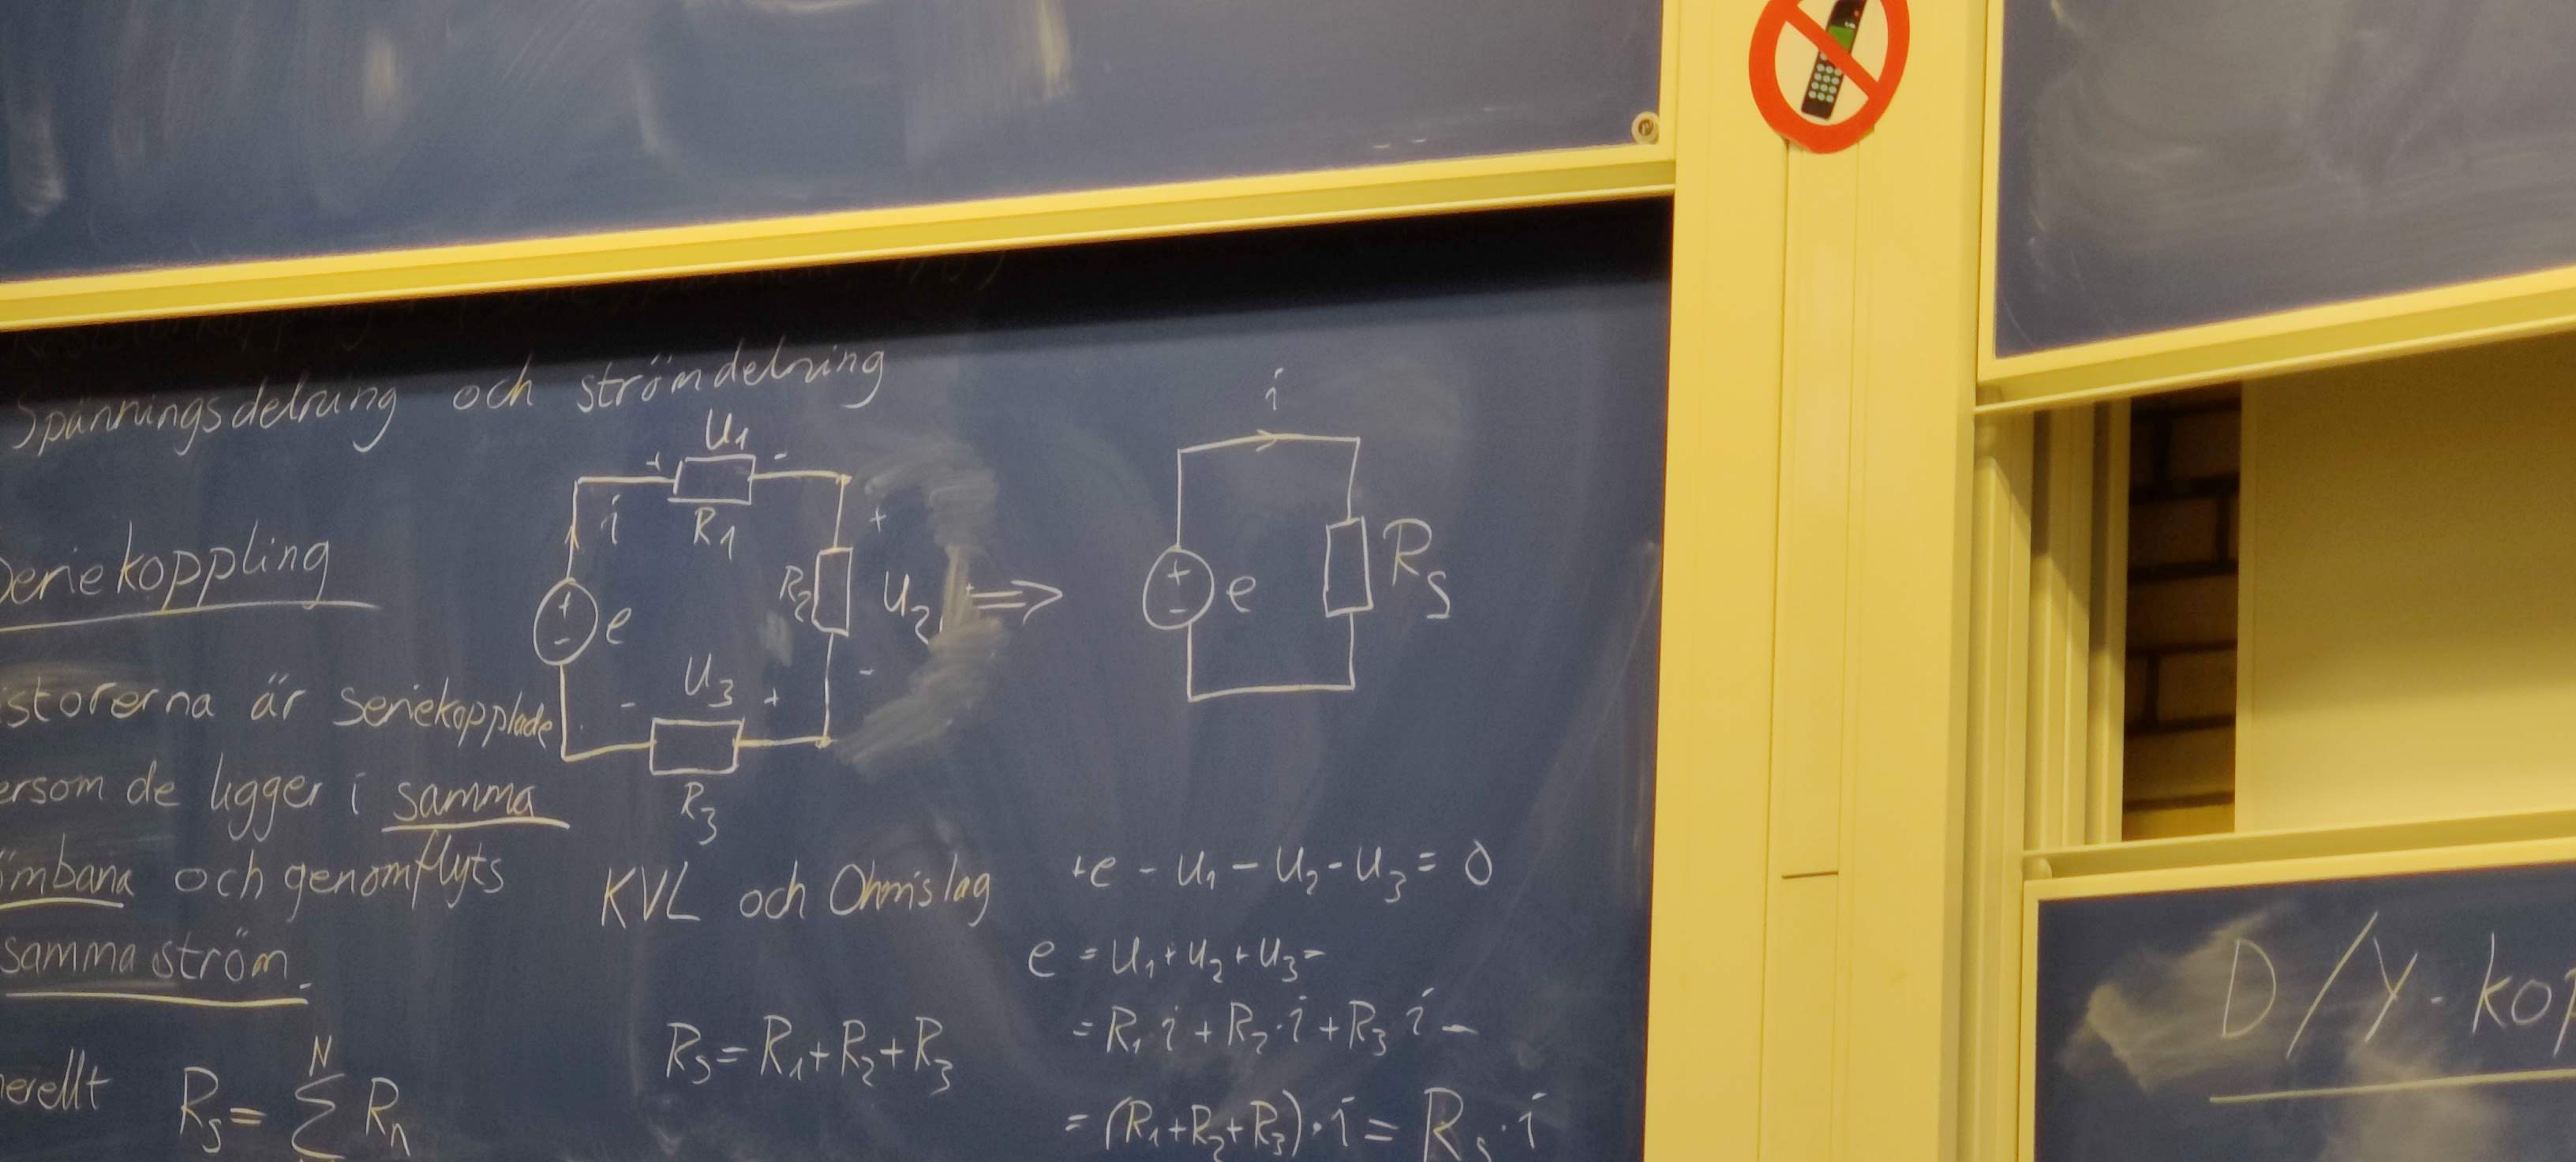 Spänningsdelning och strömdelning
Seriekoppling
istorerna är seriekopplade
ersom de ligger i samma
ömbana och genomflyts
samma ström.
nerellt R_s = N Σ R_n
U_1
+ -
i
R_1
+
R_2 U_2
-
+ - e
U_3
- +
R_3
⇒
i
+ - e R_s
KVL och Ohms lag
R_s = R_1 + R_2 + R_3
+e - U_1 - U_2 - U_3 = 0
e = U_1 + U_2 + U_3 =
= R_1·i + R_2·i + R_3 i =
= (R_1 + R_2 + R_3)·i = R_s·i
D/Y-kop